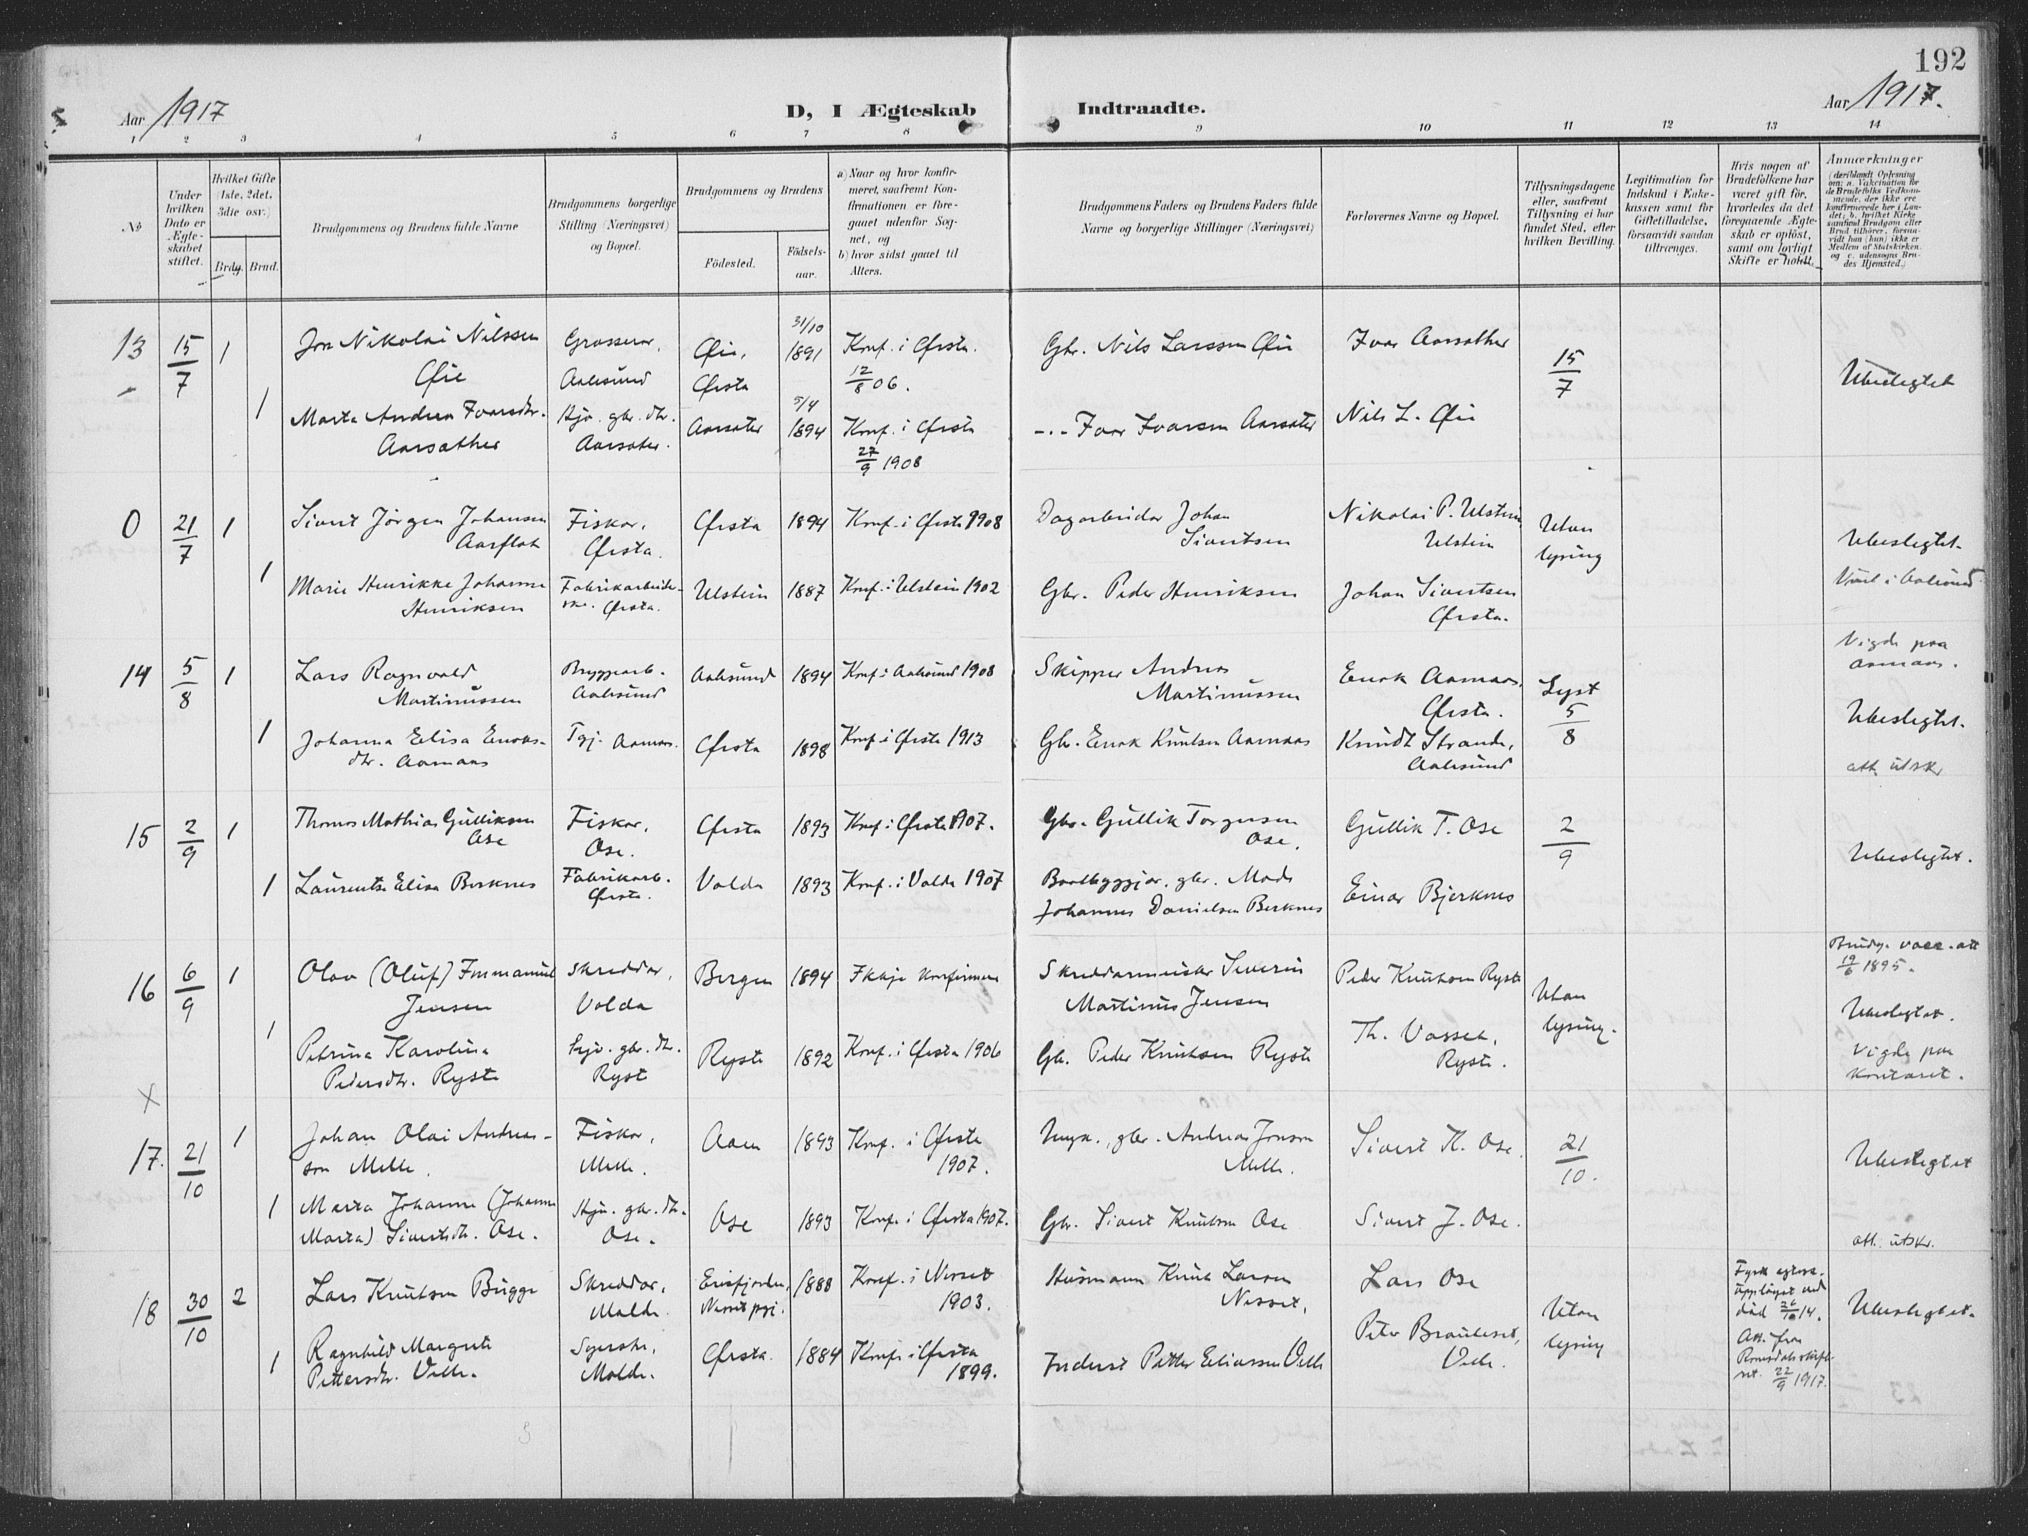 192
Aar 1917
D, I Ægteskab Indtraadte.
Aar 1917.
1 2 3 4 5 6 7 8 9 10 11 12 13 14
№
Under hvilken Dato er Ægteskabet stiftet.
Hvilket Gifte (1ste, 2det, 3die osv.)
Brdg. Brud.
Brudgommens og Brudens fulde Navne
Brudgommens borgerlige Stilling (Næringsvei) og Bopæl.
Brudgommens og Brudens
Födested.
Födselsaar.
a) Naar og hvor konfirmeret, saafremt Konfirmationen er foregaaet udenfor Sognet, og
b) hvor sidst gaaet til Alters.
Brudgommens Faders og Brudens Faders fulde Navne og borgerlige Stillinger (Næringsvei)
Forlovernes Navne og Bopæl.
Tillysningsdagene eller, saafremt Tillysning ei har fundet Sted, efter hvilken Bevilling.
Legitimation for Indskud i Enkekassen samt for Giftetilladelse, forsaavidt saadan tiltrænges.
Hvis nogen af Brudefolkene har været gift før, hvorledes da det foregaaende Ægteskab er opløst, samt om lovligt Skifte er holdt.
Anmærkninger
(deriblandt Oplysning om: a. Vakcination for de Brudefolks Vedkommende, der ikke ere konfirmerede her i Landet; b. hvilket Kirkesamfund Brudgom eller Brud tilhører, forsaavidt han (hun) ikke er Medlem af Statskirken, og c. udensogns Brudes Hjemsted.)
13 15/7 1 Jon Nikolai Nilssen Øie Grosserar, Aalesund Øie, Ørsta 31/10 1891 Konf. i Ørsta 12/8 06. Gbr. Nils Larssen Øie Ivar Aarsæther 15/7 Ubeslegtet
1 Marta Andrea Ivarsdtr. Aarsæther Hjv. gbr. dtr. Aarsæter. Aarsæter 5/4 1894 Konf. i Ørsta 27/9 1908 -.- Ivar Ivarsen Aarsæter Nils L. Øie
0 21/7 1 Sivert Jörgen Johansen Aarflot Fiskar, Ørsta. Ørsta 1894 Konf. i Ørsta 1908 Dagarbeidar Johan Sivertsen Nikolai P. Ulstein, Ulstein Utan lysing Ubeslegtet.
1 Marie Henrikke Johanne Henriksen Fabrikarbeiderske. Ørsta. Ulstein 1887 Konf. i Ulstein 1902 Gbr. Peder Henriksen Johan Sivertsen Ørsta. Viet i Aalesund.
14 5/8 1 Lars Ragnvald Martinussen Bryggearb. Aalesund Aalesund 1894 Konf. i Aalesund 1908 Skipper Andreas Martinussen Enok Aamaas, Ørsta. Lyst 5/8 Vigde paa Aamaas. Ubeslegtet.
1 Johanna Elisa Enoksdtr. Aamaas Tgj. Aamaas. Ørsta 1898 Konf. i Ørsta 1913 Gbr. Enok Knutsen Aamaas Knudt Strande, Aalesund att. utskr
15 2/9 1 Thomas Mathias Gulliksen Ose Fiskar, Ose. Ørsta 1893 Konf. i Ørsta 1907. Gbr. Gullik Torgersen Ose. Gullik T. Ose 2/9 Ubeslegtet.
1 Laurentse Elisa Berknes Fabrikarb. Ørsta. Volda 1893 Konf. i Volda 1907 Baatbyggjar, gbr. Mads Johannes Danielsen Berknes Einar Bjerknes
16 6/9 1 Olav (Oluf) Emmanuel Jensen Skreddar, Volda Bergen 1894 Ikkje konfirmert Skreddarmeister Severin Martinus Jensen Peder Knutson Ryste Utan lysing. Brudg. vacc. att 19/6 1895. Ubeslegtet.
1 Petrina Karolina Pedersdtr. Ryste Hjv. gbr. dtr. Ryst Ryste 1892 Konf. i Ørsta 1906 Gb. Peder Knutson Ryste Th. Vasset, Ryste. Vigde paa kontoret.
X
17. 21/10 1 Johan Olai Andreassen Melle. Fiskar, Melle. Aam 1893 Konf. i Ørsta 1907. gbr. Andreas Jonson Melle. Sivert K. Ose. 21/10. Ubeslegtet
1 Marta Johanne (Johanne Marta) Sivertsdtr. Ose. Hjv. gbr. dtr. Ose. Ose 1893 Konf. i Ørsta 1907. Gbr. Sivert Knutson Ose Sivert J. Ose. att. utskr.
18 30/10 2 Lars Knutsen Bugge Skreddar, Molde. Eirisfjorden, Nesset pgj. 1888 Konf. i Nesset 1903. Husmann Knut Larsen Nesset, Lars Ose Utan lysing Fyrre egtesk. uppløyst ved død 26/10 14. Att. fra Romsdals skifteret. 22/9 1917. Ubeslegtet.
1 Ragnhild Margrete Pettersdtr. Velle. Syerske, Molde. Ørsta. 1884 Konf. i Ørsta 1899. Inderst Petter Eliassen Velle Peter Brauteset, Velle.